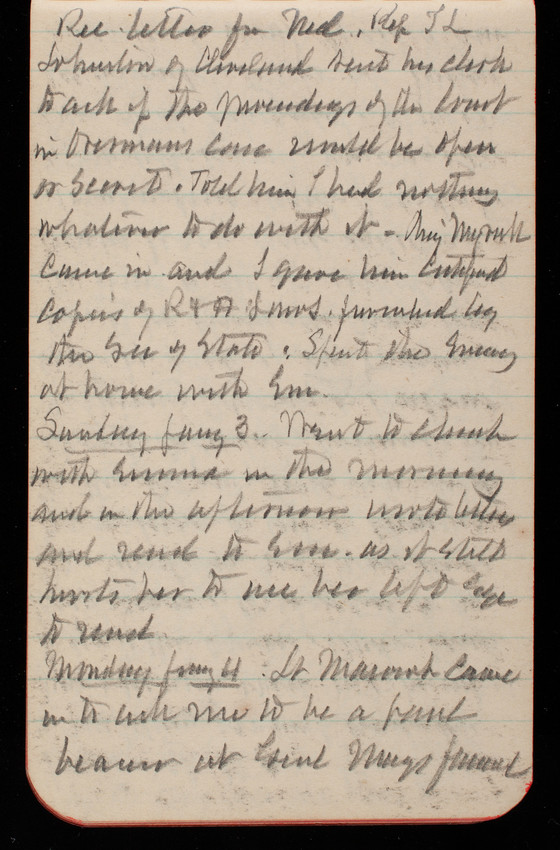 Rec letter fr Ned. Rep T L
Johnston of Cleveland sent his clerk
to ask if the proceedings of the Court
in Overmans case would be open
or secret. Told him I had nothing
whatever to do with it -
came in and I gave him certified
copies of R & H Laws. furnished by
the Sec of State. Spent the Evening
at home with Em.
Sunday Jany 3. Went to church
with Emma in the morning
and in the afternoon wrote letters
and read to Em. as it still
hurts her to use her left eye
to read
Monday Jany 4. Lt came
in to ask me to be a pall
bearer at Genl Meigs funeral